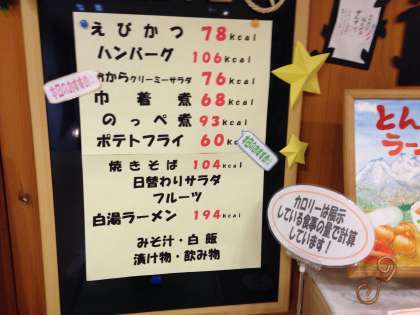 えびかつ 78kcal
ハンバーグ 106kcal
おからクリーミーサラダ 76kcal
巾着煮 68kcal
のっぺ煮 93kcal
ポテトフライ 60kc
焼きそば 104kcal
日替わりサラダ
フルーツ
白湯ラーメン 194kcal
みそ汁・白飯
漬け物・飲み物
本日のおすすめ
本日のおすすめ
カロリーは展示
している食事の量で計算
しています!
とん
ラー